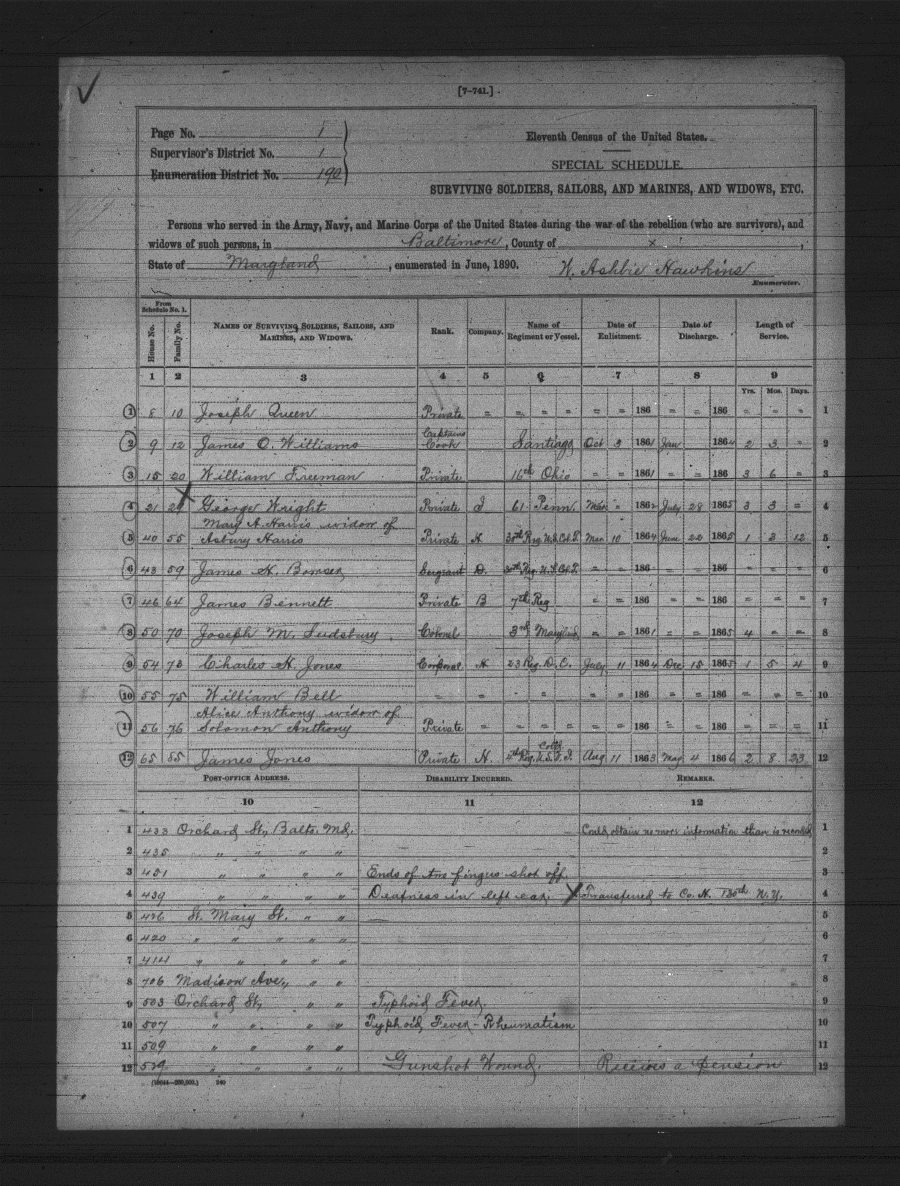 [7-741.]
Page No. 1
Supervisor's District No. 1
Enumeration District No. 190
Eleventh Census of the United States.
SPECIAL SCHEDULE.
SURVIVING SOLDIERS, SAILORS, AND MARINES, AND WIDOWS, ETC.
Persons who served in the Army, Navy, and Marine Corps of the United States during the war of the rebellion (who are survivors), and
widows of such persons, in Baltimore, County of x,
State of Maryland, enumerated in June, 1890. W. Ashbie Hawkins
Enumerator.
From Schedule No. 1.
House No. Family No. NAMES OF SURVIVING SOLDIERS, SAILORS, AND MARINES, AND WIDOWS. Rank. Company. Name of Regiment or Vessel. Date of Enlistment. Date of Discharge. Length of Service.
1 2 3 4 5 6 7 8 9
Yrs. Mos. Days.
1 8 10 Joseph Queen Private = = = = = = 186 = = 186 = = = 1
2 9 12 James O. Williams Captains Cook Santiago Oct 3 1861 Jan 1864 2 3 = 2
3 15 20 William Freeman Private 16th Ohio = = 1861 = = 186 3 6 = 3
4 21 George Wright Private I 61 Penn Mar = 1862 July 28 1865 3 3 = 4
Mary A Harris widow of
5 40 55 Asbury Harris Private H Reg. U.S. Col. T. Mar 10 1864 June 22 1865 1 3 12 5
6 43 59 James H. Sergeant D. Reg. U.S. Col. T. = = 186 = = 186 = = = 6
7 46 64 James Bennett Private B 7th Reg = = 186 = = 186 = = = 7
8 50 70 Joseph M. Sudsbury. Colonel 3rd Maryland = = 1861 = = 1865 4 = = 8
9 54 73 Charles H. Jones Corporal H 23 Reg. July 11 1864 Dec 15 1865 1 5 4 9
10 55 75 William Bell = = = = = = = 186 = = 186 = = = 10
Alice Anthony widow of
11 56 76 Solomon Anthony Private = = = = = = 186 = = 186 = = = 11
12 65 85 James Jones Private H. 4th Reg. U.S. Cold. Aug 11 1863 May 4 1866 2 8 23 12
POST-OFFICE ADDRESS. DISABILITY INCURRED. REMARKS.
10 11 12
1 433 Orchard St, Balto. Md. Could obtain no more information than is recorded 1
2 435 " " " " 2
3 431 " " " " Ends of two fingers shot off. 3
4 439 " " " " Deafness in left ear. X Transferred to Co. H. N.Y. 4
5 426 St. Mary St. " " 5
6 420 " " " " 6
7 414 " " " " 7
8 706 Madison Ave, " " 8
9 503 Orchard St, " " Typhoid Fever. 9
10 507 " " " " Typhoid Fever - Rheumatism 10
11 509 " " " " 11
12 " " " " Gunshot Wound. Receives a pension 12